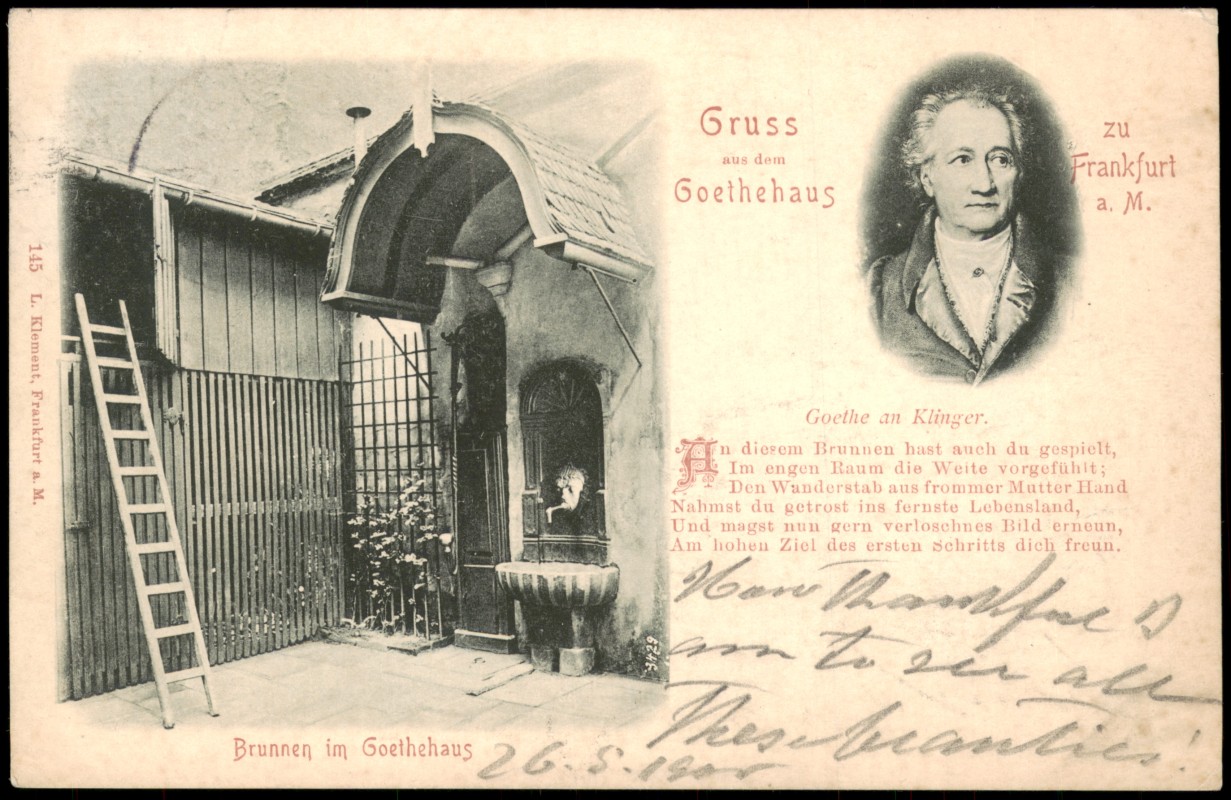 Gruss
aus dem
Goethehaus
zu
Frankfurt
a. M.
Goethe an Klinger.
An diesem Brunnen hast auch du gespielt,
Im engen Raum die Weite vorgefühlt;
Den Wanderstab aus frommer Mutter Hand
Nahmst du getrost ins fernste Lebensland,
Und magst nun gern verloschnes Bild erneun,
Am hohen Ziel des ersten Schritts dich freun.
How thankful I
am to see all
These beauties!
26.5.1900
Brunnen im Goethehaus
3429
145 L. Klement, Frankfurt a. M.